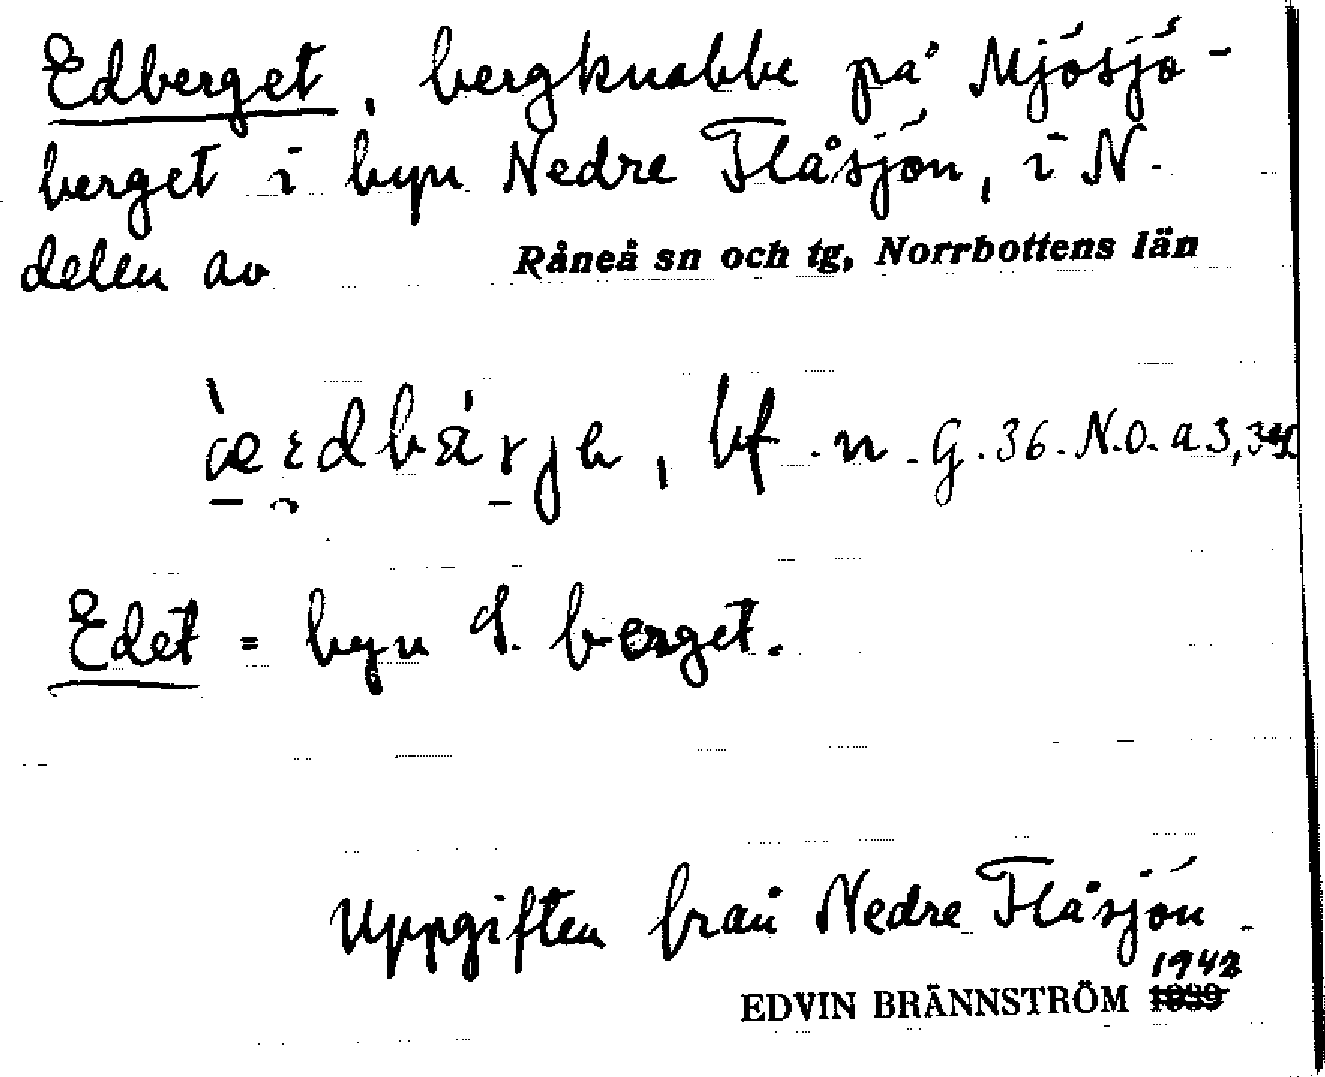 Edberget, bergknabbe på Mjösjö-
berget i byn Nedre Flåsjön, i N.
delen av Råneå sn och tg, Norrbottens län
bf. n. G. 36. N.O. a 3,
Edet = byn S. berget.
Uppgiften från Nedre Flåsjön.
1942
EDVIN BRÄNNSTRÖM 1939